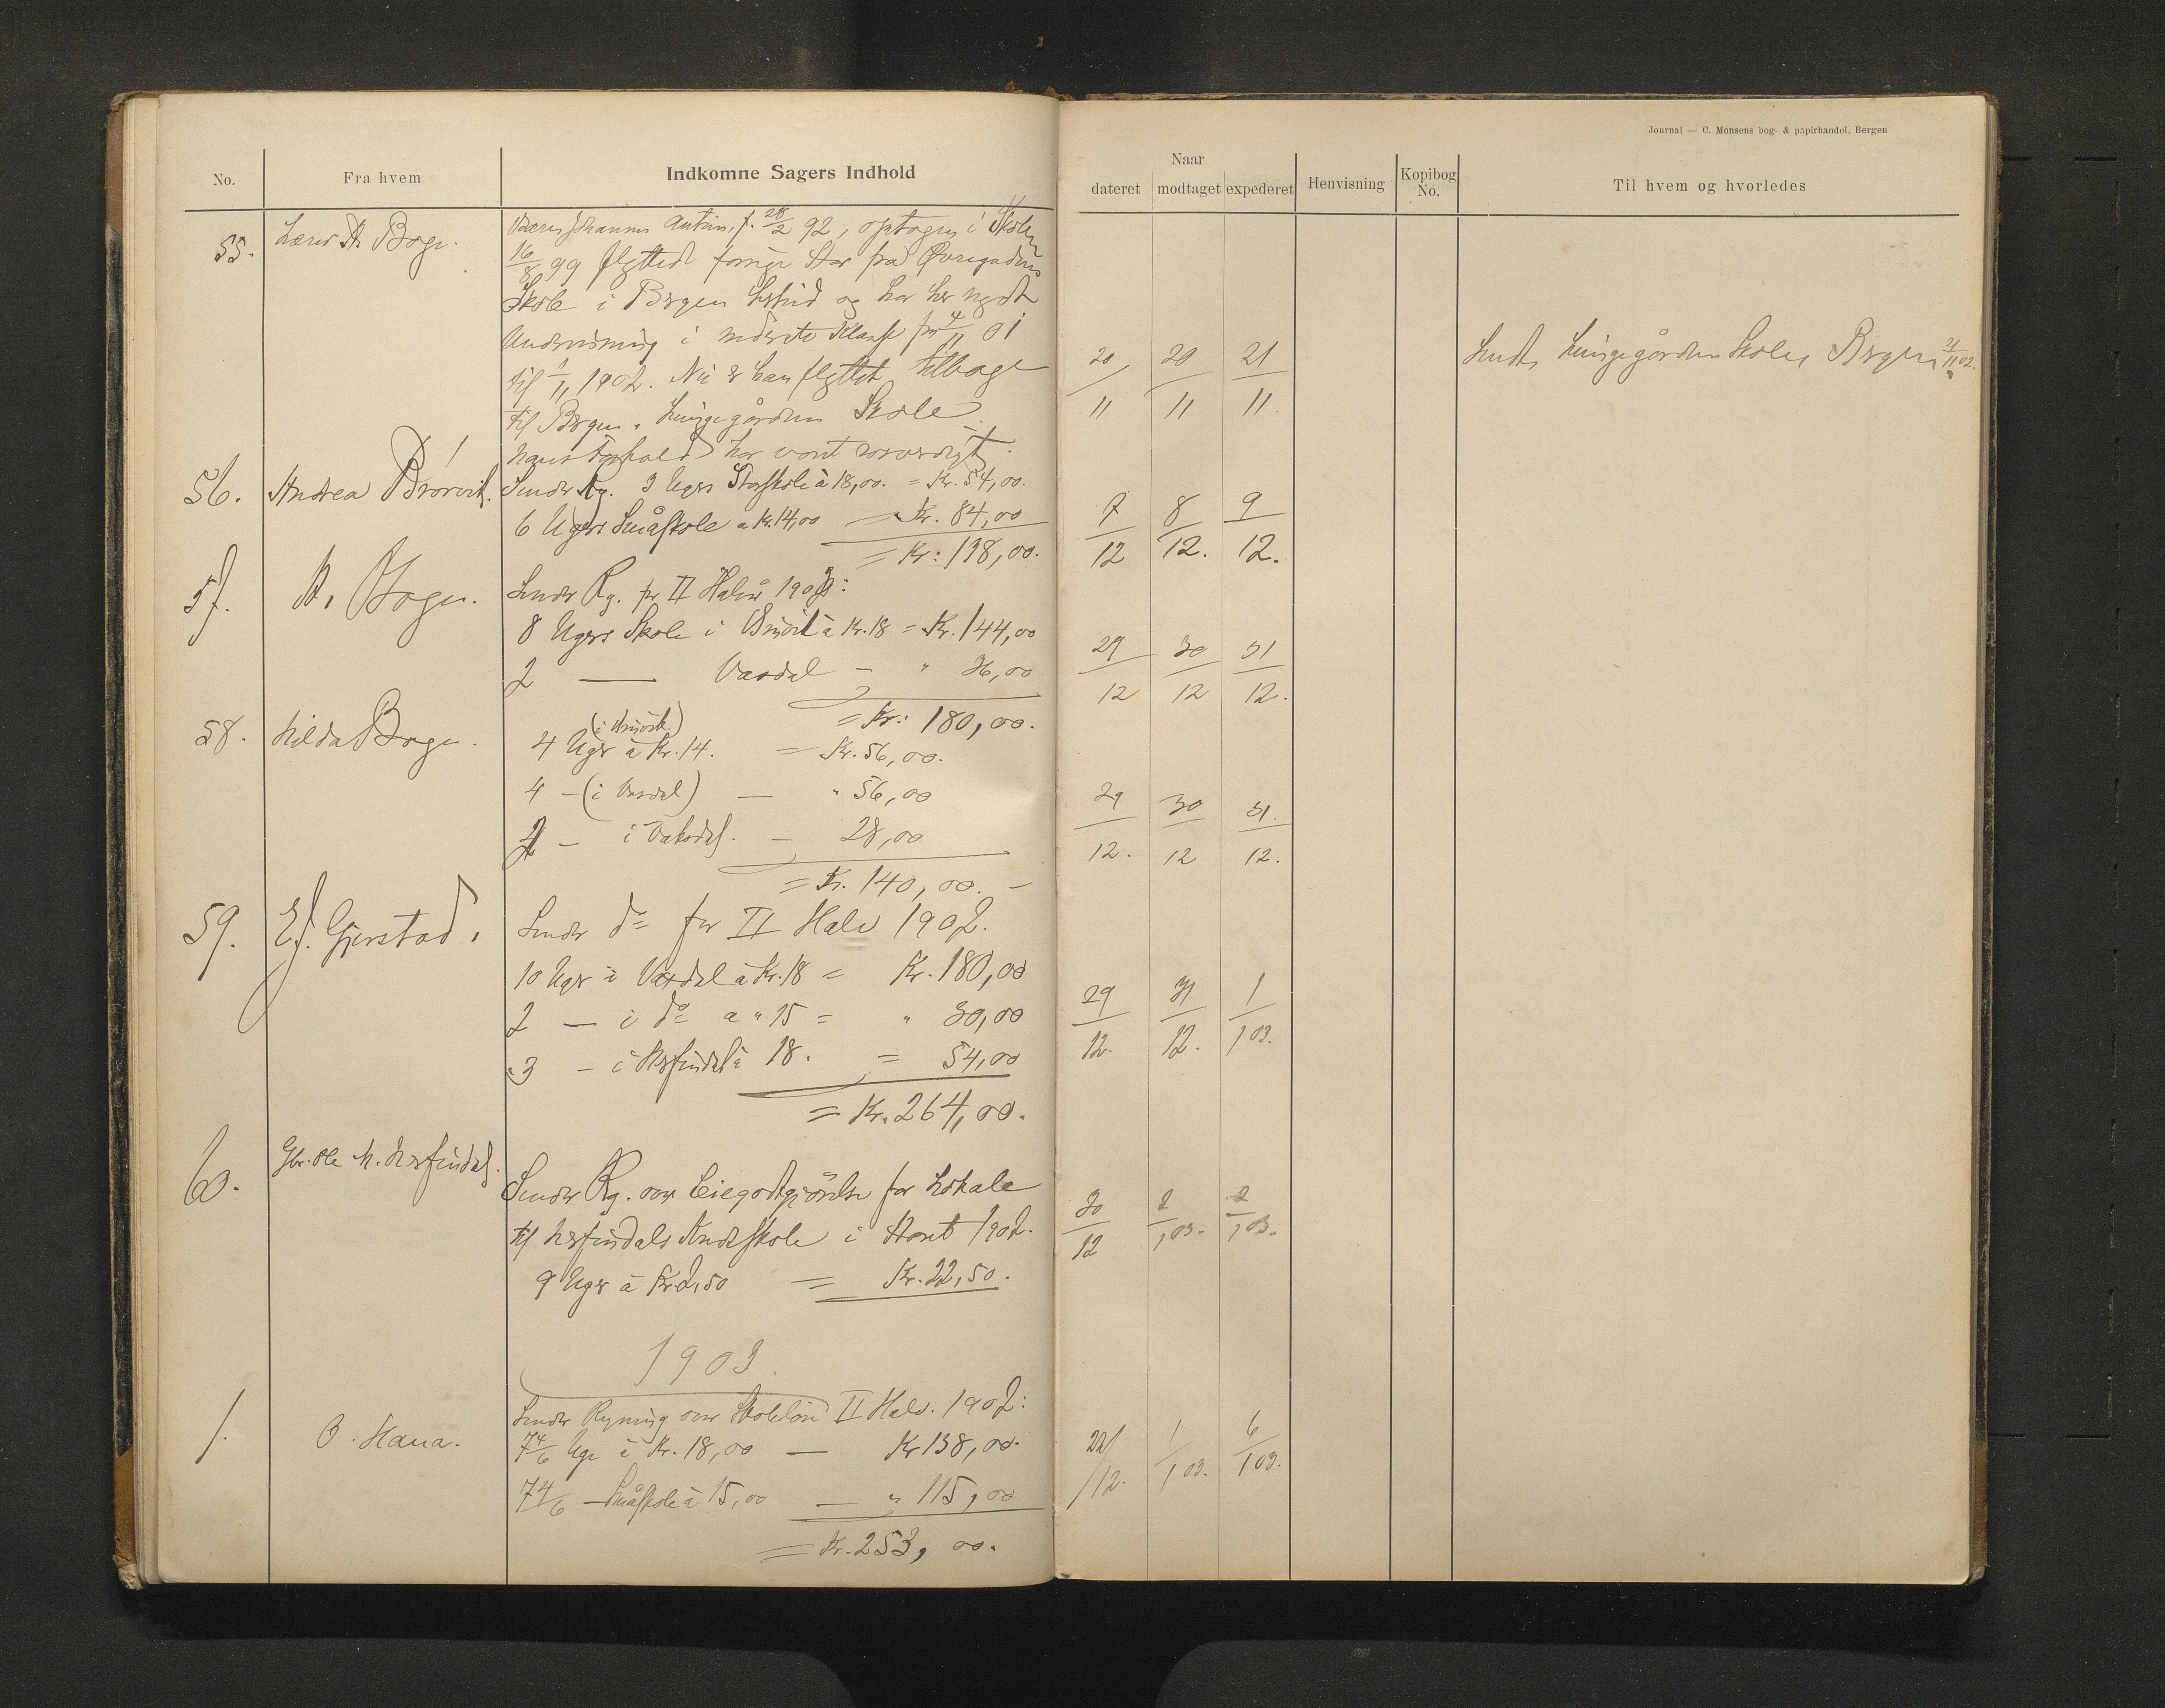 Journal — C. Monsens bog- & papirhandel, Bergen
No.
Fra hvem
Indkomne Sagers Indhold
Naar
dateret
modtaget
expederet
Henvisning
Kopibog No.
Til hvem og hvorledes
55.
Lærer A. Boge.
Johannes Antun, f. 28/2 92, optagen i Skolen
16/8 99 flyttede forrige Høst fra Øvregadens
Skole i Bergen hertid og har her nydt
Undervisning i nederste Klasse fra 4/11 01
til 1/11 1902. Nu er han flyttet tilbage
til Bergen, Lungegårdens Skole.
Hans Forhold har været rosværdigt.
20/11
20/11
21/11
Sendt Lungegårdens Skole, Bergen 21/11 02.
56.
Andrea Brørvik.
Sender Rg. 3 Ugers Storskole à 18,00. = Kr. 54,00.
6 Ugers Småskole a Kr. 14,00 = Kr. 84,00
= Kr: 138,00.
7/12
8/12.
9/12.
57.
A. Boge.
Sender Rg. for II Halvår 1902:
8 Ugers Skole i à Kr. 18 = Kr. 144,00
2 — Vaxdal - " 36,00
= Kr: 180,00.
29/12
30/12
31/12.
58.
Hilda Boge.
4 Uger à Kr. 14. = Kr. 56,00.
4 - (i Vaxdal) — " 56,00
2 - i Vaksdal. - 28,00
= Kr. 140,00. -
29/12.
30/12
31/12.
59.
E. J. Gjerstad.
Sender do for II Halv 1902.
10 Uger i Vaxdal à Kr. 18 = Kr. 180,00
2 — i do a " 15 = " 30,00
3 - i Herfindal à 18. = 54,00
= Kr. 264,00.
29/12.
31/12.
1/1 03.
60.
Gbr. Ole M. Herfindal.
Sender Rg. over Leiegodtgjørelse for Lokale
til Herfindals Skole i Høst 1902.
9 Uger à Kr. 2,50 = Kr. 22,50.
30/12
2/1 03.
2/1 03.
1903.
1.
O. Hana.
Sender Regning over Skoleløn II Halv. 1902:
7 4/6 Uge à Kr. 18,00 — Kr 138,00.
7 4/6 - Småskole à 15,00 — " 115,00
= Kr. 253,00.
22/12.
1/1 03.
6/1 03.